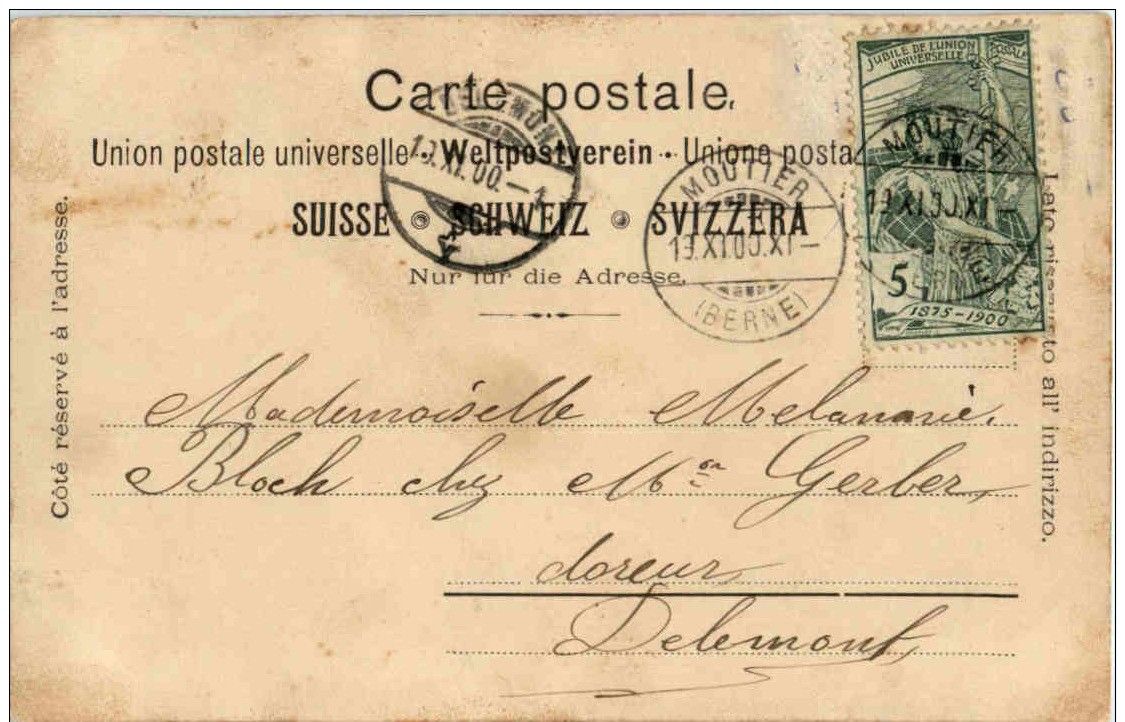 Carte postale.
Union postale universelle · Weltpostverein · Unione posta
SUISSE SCHWEIZ SVIZZERA
Nur für die Adresse.
Côté réservé à l'adresse.
Lato riservato all' indirizzo.
JUBILÉ DE L'UNION POSTALE
UNIVERSELLE
5
1875-1900
MOUTIER
19.XI.00.XI-
MOUTIER
19.XI.00.XI-
(BERNE)
19.XI.00.-
Mademoiselle Melanie
Bloch chez Mr Gerber
doreur
Delemont